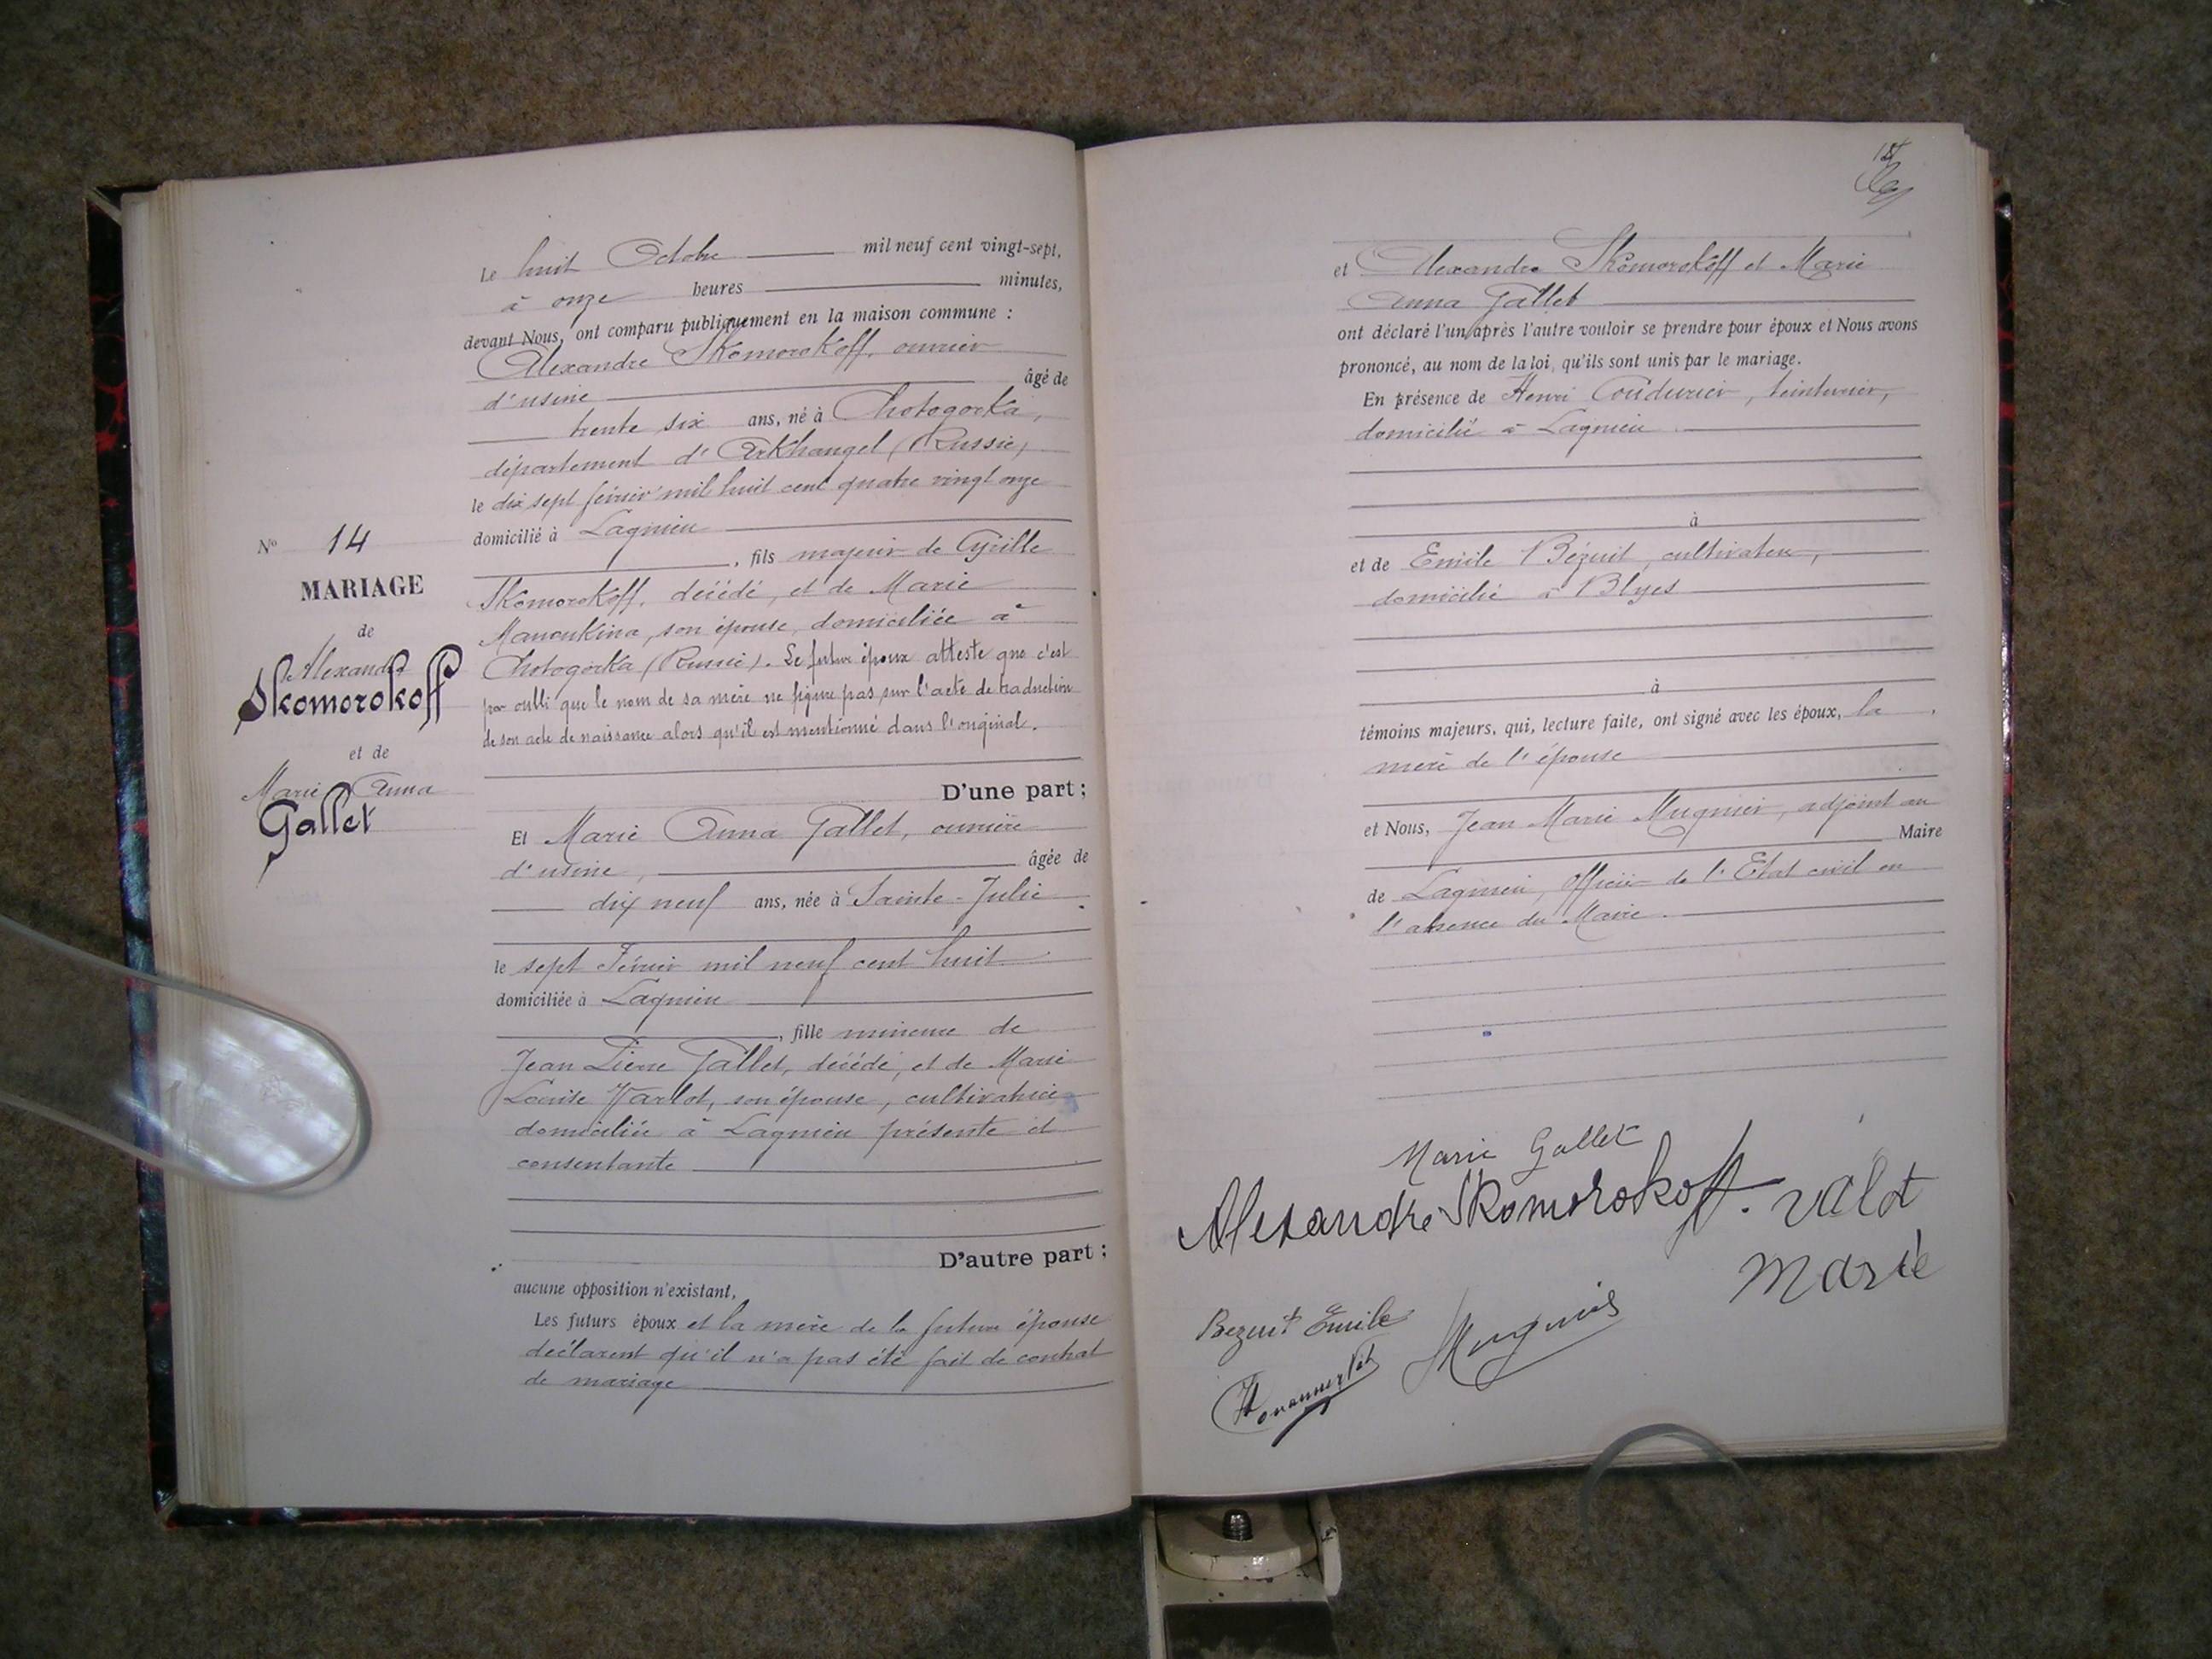 Le huit Octobre mil neuf cent vingt-sept,
à onze heures minutes,
devant Nous, ont comparu publiquement en la maison commune :
Alexandre Skomorokoff, ouvrier
d'usine âgé de
trente six ans, né à Chotogorka,
département d'Arkhangel (Russie)
le dix sept février mil huit cent quatre vingt onze
domicilié à Lagnieu
, fils majeur de Cyrille
Skomorokoff, décédé, et de Marie
Manoukina, son épouse, domiciliée à
Chotogorka (Russie). Le futur époux atteste que c'est
par oubli que le nom de sa mère ne figure pas sur l'acte de traduction
de son acte de naissance alors qu'il est mentionné dans l'original.
D'une part ;
No 14
MARIAGE
de
Alexandre
Skomorokoff
et de
Marie Anna
Gallet
Et Marie Anna Gallet, ouvrière
d'usine, âgée de
dix neuf ans, née à Sainte-Julie
le sept Février mil neuf cent huit
domiciliée à Lagnieu
, fille mineure de
Jean Pierre Gallet, décédé, et de Marie
Louise son épouse, cultivatrice
domiciliée à Lagnieu présente et
consentante
D'autre part ;
aucune opposition n'existant,
Les futurs époux et la mère de la future épouse
déclarent qu'il n'a pas été fait de contrat
de mariage
et Alexandre Skomorokoff et Marie
Anna Gallet
ont déclaré l'un après l'autre vouloir se prendre pour époux et Nous avons
prononcé, au nom de la loi, qu'ils sont unis par le mariage.
En présence de Henri Coudurier, teinturier,
domicilié à Lagnieu.
à
et de Emile Bézuit, cultivateur,
domicilié à Blyes
à
témoins majeurs, qui, lecture faite, ont signé avec les époux, la
mère de l'épouse
et Nous, Jean Marie Mugnier, adjoint au
Maire
de Lagnieu, Officier de l'Etat civil en
l'absence du Maire.
Marie Gallet
Alexandre Skomorokoff. Valot
Marie
Bezuit Emile
Mugnier